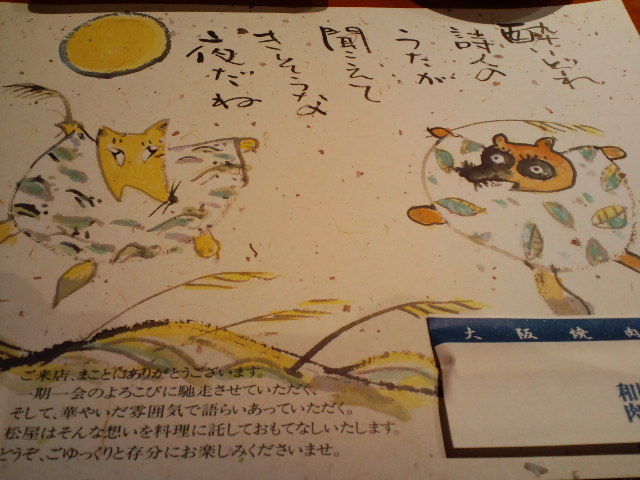 酔いどれ
詩人の
うたが
聞こえて
きそうな
夜だね
ご来店、まことにありがとうございます。
一期一会のよろこびに馳走させていただく、
そして、華やいだ雰囲気で語らいあっていただく。
松屋はそんな想いを料理に託しておもてなしいたします。
どうぞ、ごゆっくりと存分にお楽しみくださいませ。
大阪焼肉
和
肉